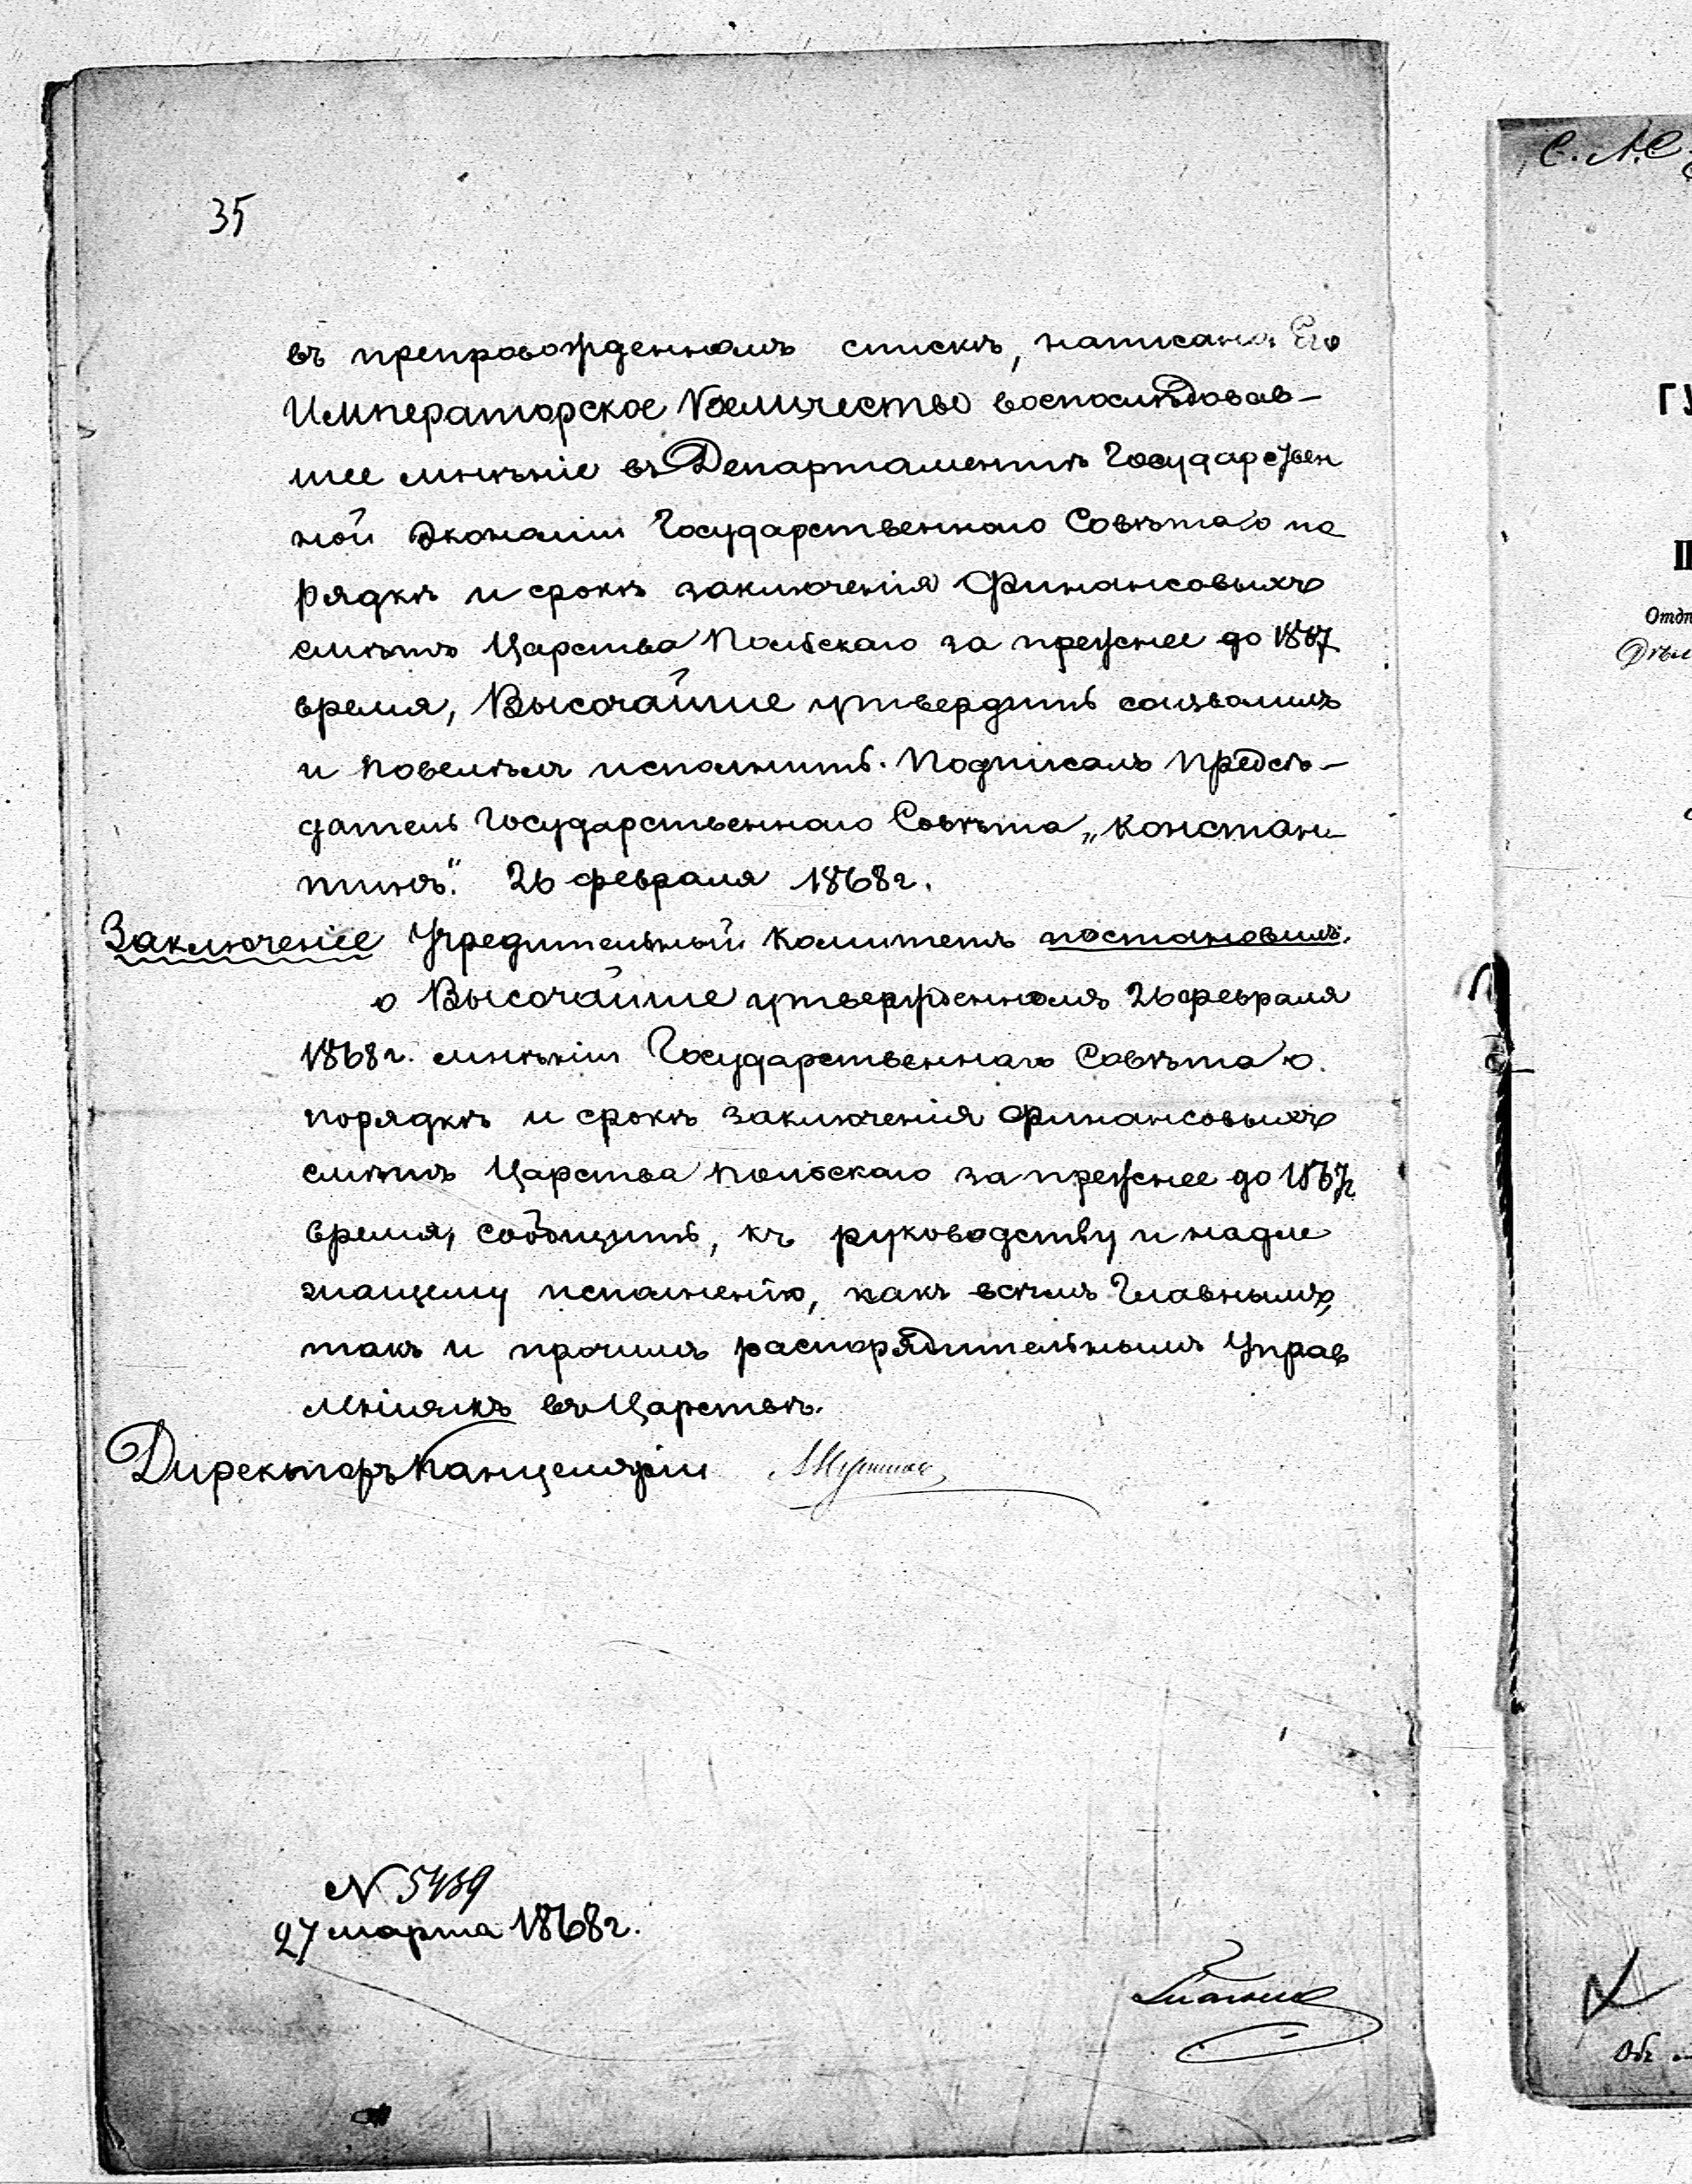 35
въ препровожденномъ спискѣ, написано: Его
Императорское Величество воспослѣдовав-
шее мнѣніе въ Департаментѣ Государствен
ной Экономіи Государственнаго Совѣта о по
рядкѣ и срокѣ заключенія финансовыхъ
смѣтъ Царства Польскаго за прежнее до 1867
время, Высочайше утвердить соизволилъ
и повелѣлъ исполнить. Подписалъ Предсѣ-
датель Государственнаго Совѣта „Констан-
тинъ“. 26 февраля 1868 г.
Заключеніе Учредительный Комитетъ постановилъ:
о Высочайше утвержденномъ 26 февраля
1868 г. мнѣніи Государственнаго Совѣта о
порядкѣ и срокѣ заключенія финансовыхъ
смѣтъ Царства Польскаго за прежнее до 1867 г.
время, сообщить, къ руководству и надле
жащему исполненію, какъ всѣмъ Главнымъ,
такъ и прочимъ распорядительнымъ Управ
леніямъ въ Царствѣ.
Директоръ Канцеляріи
N 5439
27 марта 1868 г.
С. А. С.
ГУ
II
Отдѣ
Дѣл
Объ